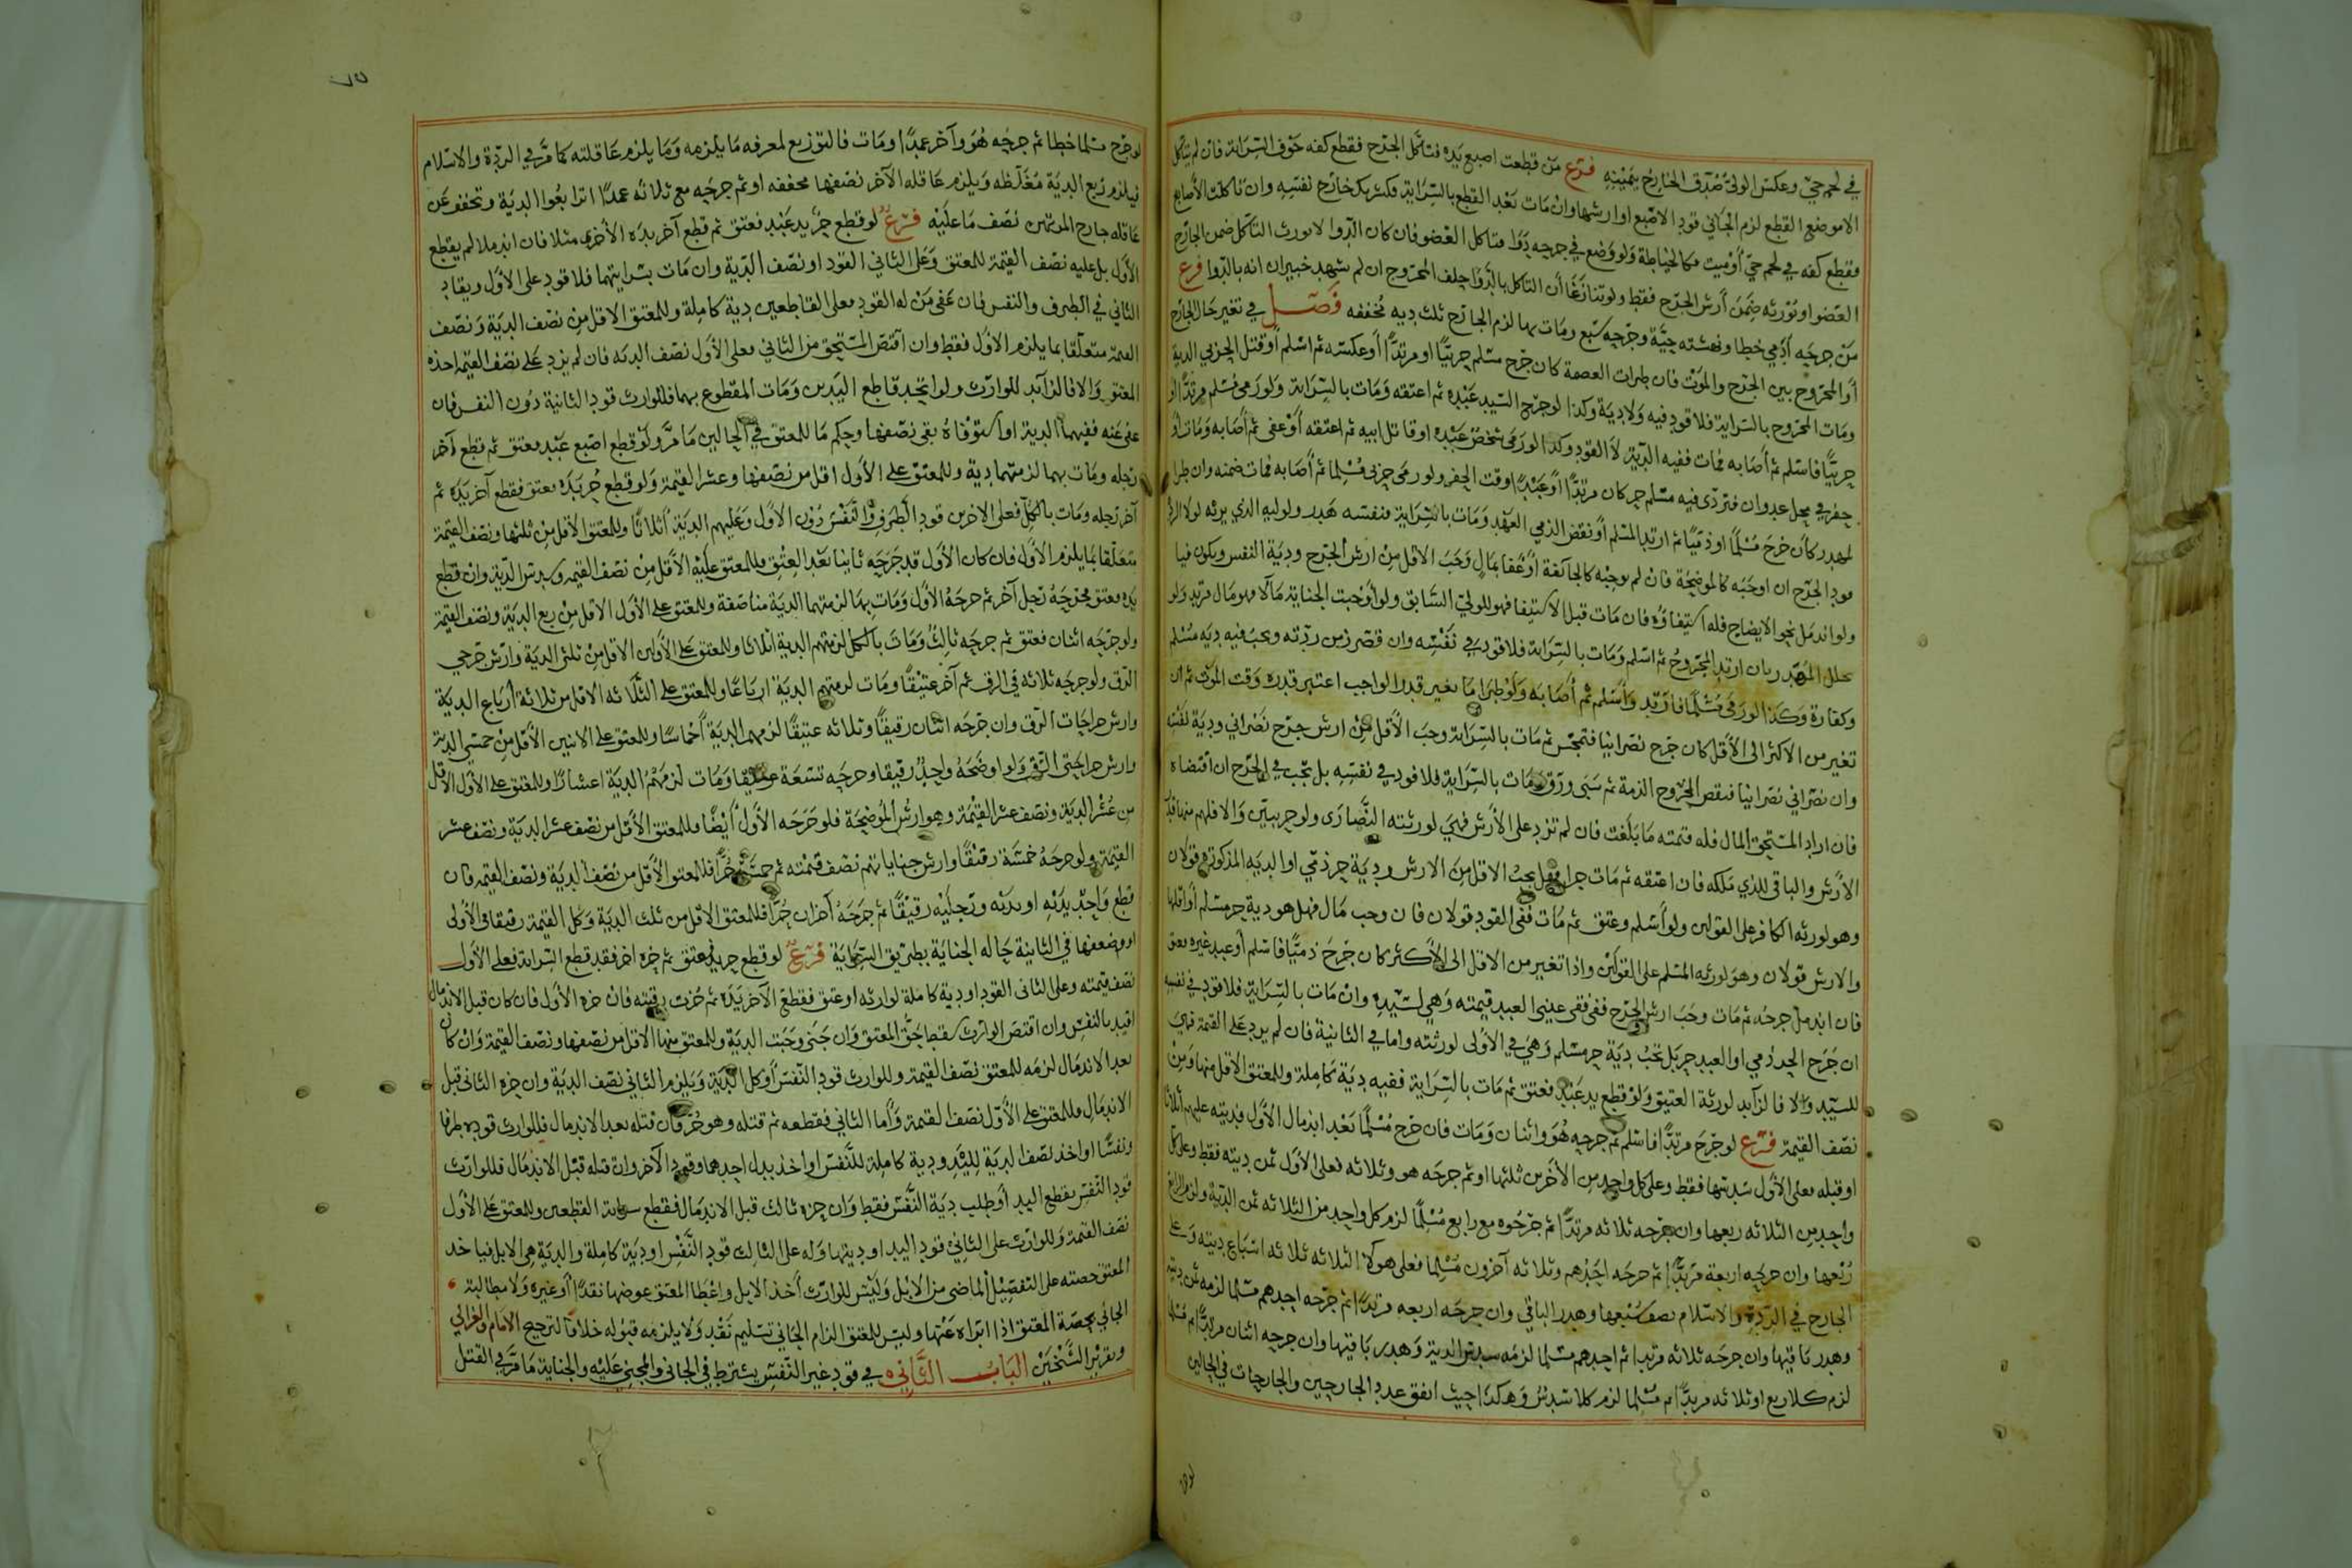 في لحم حي وعكس الولي صدق الجارح بيمينه فرع من قطعت اصبع يده فتاكل الجرح فقطع كفه خوف السراية فان لم يتاكل
الا موضع القطع لزم الجاني قود الاصبع او ارشها وان مات بعد القطع بالسراية فكشريك جارح نفسه وان تاكلت الأصابع
فقطع كفه في لحم حي أو ميت فكالخياطة ولو وضع في جرحه دوا فتاكل العضو فان كان الدوا لا يورث التاكل ضمن الجارح
العضو او يورثه ضمن أرش الجرح فقط ولو تنازعا أن التاكل بالدوا حلف المجروح ان لم يشهد خبيران انه بالدوا فرع
من جرحه آدمي خطا ونهشته حية وجرحه سبع ومات بها لزم الجارح ثلث دية مخففه فصل في تغير حال الجارح
أو المجروح بين الجرح والموت فان طرات العصمة كان جرح مسلم حربيا او مرتدا أو عكسه ثم اسلم أو قتل الحربي الدية
ومات المجروح بالسراية فلا قود فيه ولا دية وكذا لو جرح السيد عبده ثم اعتقه ومات بالسراية ولو رمى مسلم مرتدا او
حربيا فاسلم ثم أصابه فمات ففيه الدية لا القود وكذا لو رمى شخص عبده او قاتل ابيه ثم اعتقه أو عفى ثم أصابه ومات او
حفر في محل عدوان فتردى فيه مسلم حر كان مرتدا أو عبدا وقت الحفر ولو رمى حربى مسلما ثم أصابه فمات ضمنه وان طرا
لمهدر كان جرح مسلما او ذميا ثم ارتد المسلم أو نقض الذمي العهد ومات بالسراية فنفسه هدر ولوليه الذي يرثه لولا الردة
قود الجرح ان اوجبه كالموضحة فان لم يوجبه كالجائفة أو عفا بمال وجب الاقل من ارش الجرح ودية النفس ويكون فيا
ولو اندمل نحو الايضاح فله استيفاؤه فان مات قبل الاستيفا فهو للولي السابق ولو أوجبت الجناية مالا فهو مال مرتد ولو
تخلل المهدر بان ارتد المجروح ثم اسلم ومات بالسراية فلا قود في نفسه وان قصر زمن ردته وتجب فيه دية مسلم
وكفارة وكذا لو رمى مسلما فارتد وأسلم ثم أصابه ولو طرا ما يغير قدر الواجب اعتبر قدره وقت الموت ثم ان
تغير من الاكثر الى الأقل كان جرح نصرانيا فتمجس ثم مات بالسراية وجب الأقل من ارش جرح نصراني ودية نفسه
وان نصراني نصرانيا فنقض المجروح الذمة ثم سبى ورق ومات بالسراية فلا قود في نفسه بل تجب في الجرح ان اقتضاه
فان اراد المستحق المال فله قيمته ما بلغت فان لم تزد على الأرش فهي لورثته النصارى ولو حربيين والا فلهم منها قدر
الأرش والباقي للذي ملكه فان اعتقه ثم مات حرا فهل يجب الاقل من الارش ودية حر ذمي او الدية المذكورة قولان
وهو لورثه الكافر على القولين ولو أسلم وعتق ثم مات ففي القود قولان فان وجب مال فهل هو دية حر مسلم أو اقلها
والارش قولان وهو لورثه المسلم على القولين واذا تغير من الاقل الى الأكثر كان جرح ذميا فاسلم أو عبد غيره فعتق
فان اندمل جرحه ثم مات وجب ارش الجرح ففي فقى عيني العبد قيمته وهي لسيده وان مات بالسراية فلا قود في نفسه
ان جرح الحر ذمي او العبد حر بل تجب دية حر مسلم وهي في الأولى لورثته واما في الثانية فان لم يزد على القيمة فهي
للسيد والا فالزآيد لورثة العتيق ولو قطع يد عبد فعتق ثم مات بالسراية ففيه دية كاملة وللمعتق الاقل منها ومن
نصف القيمة فرع لو جرح مرتدا فاسلم ثم جرحه هو واثنان ومات فان جرح مسلما بعد اندمال الأول فديته عليهم أثلاثا
او قبله فعلى الأول سدسها فقط وعلى كل واحد من الأخرين ثلثها او ثم جرحه هو وثلاثه فعلى الأول ثمن ديته فقط وعلى كل
واحد من الثلاثه ربعها وان جرحه ثلاثه مرتدا ثم جرحوه مع رابع مسلما لزم كل واحد من الثلاثه ثمن الدية ولزم الرابع
ربعها وان جرحه اربعة مرتدا ثم جرحه احدهم وثلاثه آخرون مسلما فعلى هولا الثلاثه ثلاثه اسباع ديته وعلى
الجارح في الردة والاسلام نصف سبعها وهدر الباقي وان جرحه اربعه مرتدا ثم جرحه احدهم مسلما لزمه ثمن ديته
وهدر باقيها وان جرحه ثلاثه مرتدا ثم احدهم مسلما لزمه سدس الدية وهدر باقيها وان جرحه اثنان مرتدا ثم مسلما
لزم كلا ربع او ثلاثه مرتدا ثم مسلما لزم كلا سدس وهكذا حيث اتفق عدد الجارحين والجارحات في الحالين
لو جرح مسلما خطا ثم جرحه هو وآخر عمدا ومات فالتوزيع لمعرفه ما يلزمه وما يلزم عاقلته كما مر في الردة والاسلام
فيلزم ربع الدية مغلظه ويلزم عاقله الآخر نصفها مخففه او ثم جرحه مع ثلاثه عمدا
عاقله جارح المرتين نصف ما عليه فرع لو قطع حر يد عبد فعتق ثم قطع آخر يده الأخرى مثلا فان اندملا لم يقطع
الأول بل عليه نصف القيمة للمعتق وعلى الثاني القود او نصف الدية وان مات بسرايتهما فلا قود على الأول ويقاد
الثاني في الطرف والنفس فان عفى من له القود فعلى القاطعين دية كاملة وللمعتق الاقل من نصف الدية ونصف
القيمة متعلقا بما يلزم الأول فقط وان اقتص المستحق من الثاني فعلى الأول نصف الديه فان لم يزد على نصف القيمة اخذه
المعتق والا فالزآيد للوارث ولو اتحد قاطع اليدين ومات المقطوع بهما فللوارث قود الثانية دون النفس فان
عفى عنه ففيهما الدية او استوفاه بقي نصفها وحكم ما للمعتق في الحالين ما مر ولو قطع اصبع عبد فعتق ثم قطع آخر
رجله ومات بهما لزمتهما دية وللمعتق على الأول اقل من نصفها وعشر القيمة ولو قطع حر يده فعتق فقطع آخر يده ثم
آخر رجله ومات بالكل فعلى الاخرين قود الطرف والنفس دون الأول وعليهم الدية أثلاثا وللمعتق الأقل من ثلثها ونصف القيمة
متعلقا بما يلزم الأول فان كان الأول قد جرحه ثانيا بعد العتق فللمعتق عليه الأقل من نصف القيمه وسدس الدية وان قطع
يده فعتق فجرحه رجل آخر ثم جرحه الأول ومات بها لزمتهما الدية مناصفة وللمعتق على الأول الاقل من ربع الدية ونصف القيمة
ولو جرحه اثنان فعتق ثم جرحه ثالث ومات بالكل لزمتهم الدية أثلاثا وللمعتق على الأولين الاقل من ثلثي الدية وارش جرحي
الرق ولو جرحه ثلاثه في الرق ثم آخر عتيقا ومات لزمتهم الدية ارباعا وللمعتق على الثلاثه الاقل من ثلاثة أرباع الدية
وارش جراحات الرق وان جرحه اثنان رقيقا وثلاثه عتيقا لزمهم الدية أخماسا وللمعتق على الاثنين الأقل من خمسي الدية
وارش جراحتي الرق ولو اوضحه واحد رقيقا وجرحه تسعة عتيقا ومات لزمتهم الدية اعشارا وللمعتق على الأول الاقل
من عشر الدية ونصف عشر القيمة وهو ارش الموضحة فلو جرحه الأول أيضا فللمعتق الأقل من نصف عشر الدية ونصف عشر
القيمة ولو جرحه خمسة رقيقا وارش جناياتهم نصف قيمته ثم خمسة حرا فللمعتق الأقل من نصف الدية ونصف القيمه فان
قطع واحد يديه او يديه ورجليه رقيقا ثم جرحه آخران حرا فللمعتق الاقل من ثلث الدية وكل القيمة رقيقا في الأولى
او وضعفها في الثانية حاله الجناية بطريق السراية فرع لو قطع حر يد فعتق ثم حزه اخر فقد قطع السراية فعلى الأول
نصف قيمته وعلى الثاني القود او دية كاملة لوارثه او عتق فقطع الآخر يده ثم حزت رقبته فان حزه الأول فان كان قبل الاندمال
اقيد بالنفس وان اقتص الوارث سقط حق المعتق وان جنى وجبت الدية وللمعتق منها الاقل من نصفها ونصف القيمة وان كان
بعد الاندمال لزمه للمعتق نصف القيمة وللوارث قود النفس أو كل الدية ويلزم الثاني نصف الدية وان حزه الثاني قبل
الاندمال فللمعتق على الأول نصف القيمة وأما الثاني فقطعه ثم قتله وهو حر فان قتله بعد الاندمال فللوارث قوده طرفا
ونفسا او اخذ نصف الدية لليد ودية كاملة للنفس او اخذ بدل احدهما وقود الآخر وان قتله قبل الاندمال فللوارث
قود النفس بقطع اليد أو طلب دية النفس فقط وان حزه ثالث قبل الاندمال فقطع سراية القطعين وللمعتق على الأول
نصف القيمة وللوارث على الثاني قود اليد او ديتها وله على الثالث قود النفس او دية كاملة والدية هي الابل فياخذ
المعتق حصته على التفصيل الماضى من الابل وليس للوارث أخذ الابل واعطا المعتق عوضها نقدا أو غيره ولا مطالبة
الجاني بحصة المعتق اذا ابراه عنها وليس للمعتق الزام الجاني تسليم نقد ولا يلزمه قبوله خلافا لترجيح الامام والغزالي
وتقرير الشيخين الباب الثاني في قود غير النفس يشترط في الجاني والمجني عليه والجناية ما مر في القتل